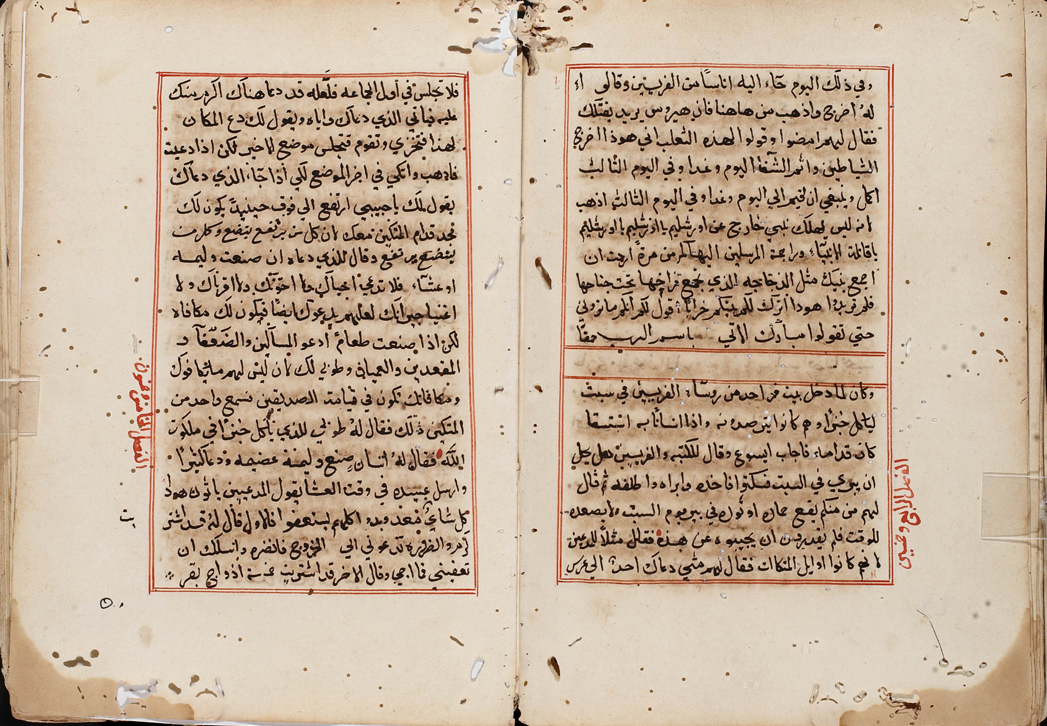 وفي ذلك اليوم جاء اليه اناسًا من الفريسين وقالو
له اخرج واذهب من هاهنا فان هيرودس يريد يقتلك
فقال لهم امضوا وقولوا لهذه الثعلب اني هوذا اخرج
الشياطين واتمم الشفا اليوم وغدا وفي اليوم الثالث
اكمل وينبغي ان اليوم وغدا وفي اليوم الثالث اذهب
لانه ليس يهلك نبي خارج عن اورشليم يا اورشليم يا اورشليم
يا قاتلة الانبياء وراجمة المرسلين اليها كم من مرة اردت ان
اجمع بنيك مثل الدجاجه الذي تجمع فراخها تحت جناحها
فلم تريدوا هوذا اترك لكم بيتكم خرابا اقول لكم انكم ما تروني
حتى تقولوا مبارك الاتي باسم الرب حقا
وكان لما دخل بيت واحد من رؤساء الفريسين في سبت
لياكل خبزا وهم كانوا يترصدونه واذا انسانا به استسقا
كان قدامه فاجاب ايسوع وقال للكتبه والفريسين هل يحل
ان يبري في السبت فسكتوا فاخذه وابراه واطلقه ثم قال
لهم من منكم يقع حماره او ثوره في بير يوم السبت ولا يصعده
للوقت فلم يقدرون ان يجيبوه عن هذه فقال مثلا للمدعين
لانهم كانوا اوايل المتكات فقال لهم متي دعاك احدا الي عرس
الفصل الرابع وخمسين
فلا تجلس في اول الجماعه فلعله قد دعا هناك اكرم منك
عليه فياتي الذي دعاك واياه ويقول لك دع المكان
لهذا فتخزي وتقوم فتجلس موضع الاخير لكن اذا دعيت
فاذهب واتكي في اخر الموضع لكي اذا جاء الذي دعاك
يقول لك يا حبيبي ارتفع الي فوق حينيذ يكون لك
مجد قدام المتكين معك لان كل من يرتفع يتضع وكل من
يتضع يرتفع وقال للذي دعاه ان صنعت وليمه
او عشاء فلا تدعي احباك ولا اخوتك ولا اقرباك ولا
اغنيا جيرانك لعلهم يدعوك ايضا فيكون لك مكافاه
لكن اذا صنعت طعام ادعو المساكين والضعفا و
المقعدين والعميان وطوبي لك لان ليس لهم ما يكافوك
ومكافاتك تكون في قيامة الصديقين فسمع واحد من
المتكين ذلك فقال له طوبي للذي ياكل خبزا في ملكوت
الله فقال له انسان صنع وليمة عضيمه ودعا كثيرا
وارسل عبيده في وقت العشا يقول المدعيين ياتون هوذا
كل شاي معد وبدو اكلهم يستعفوا فالاول قال له قد اشتر
كرم والضروره تدعوني الي الخروج فانضره واسلك ان
تعفيني فما اجي وقال الاخر قد اشتريت خمسة ازواج بقر
الفصل الخامس وخمسون